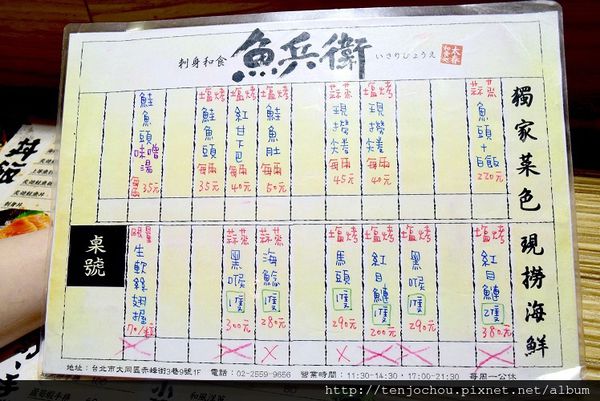 刺身和食 魚兵衛 いさりびょうえ
獨家菜色
蒜蒸 魚頭+白飯 220元
塩烤 現撈尖卷 每兩 40元
蒜蒸 現撈尖卷 每兩 45元
塩烤 鮭魚肚 每兩 50元
塩烤 紅甘下巴 每兩 40元
塩烤 鮭魚頭 每兩 35元
鮭魚頭味噌湯 每兩 35元
現撈海鮮
塩烤 紅目鰱 1隻 380元
塩烤 黑喉 1隻 290元
塩烤 紅目鰱 1隻 200元
塩烤 馬頭 1隻 290元
蒜蒸 海鯰 1隻 280元
蒜蒸 黑喉 1隻 300元
限量 生軟絲翅握 70/貫
桌號
地址：台北市大同區赤峰街3巷9號1F 電話：02-2559-9656 營業時間：11:30-14:30・17:00-21:30 每周一公休
http://tenjochou.pixnet.net/album